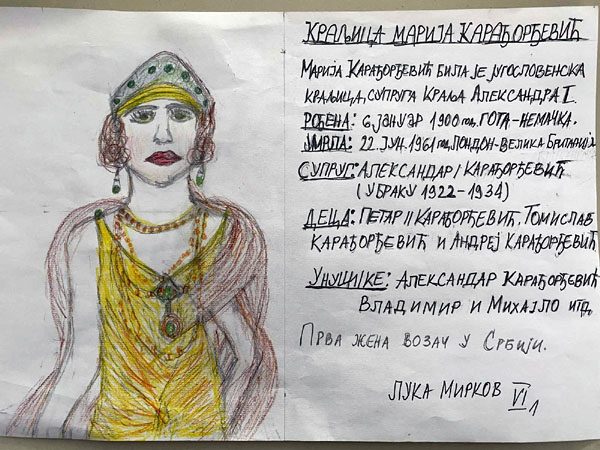 КРАЉИЦА МАРИЈА КАРАЂОРЂЕВИЋ
МАРИЈА КАРАЂОРЂЕВИЋ БИЛА ЈЕ ЈУГОСЛОВЕНСКА
КРАЉИЦА, СУПРУГА КРАЉА АЛЕКСАНДРА I.
РОЂЕНА: 6. ЈАНУАР 1900 год. ГОТА-НЕМАЧКА.
УМРЛА: 22. ЈУН. 1961 год. ЛОНДОН-ВЕЛИКА БРИТАНИЈА
СУПРУГ: АЛЕКСАНДАР I КАРАЂОРЂЕВИЋ
(У БРАКУ 1922-1934)
ДЕЦА: ПЕТАР II КАРАЂОРЂЕВИЋ, ТОМИСЛАВ
КАРАЂОРЂЕВИЋ И АНДРЕЈ КАРАЂОРЂЕВИЋ
УНУЦИ/КЕ: АЛЕКСАНДАР КАРАЂОРЂЕВИЋ
ВЛАДИМИР И МИХАЈЛО итд.
ПРВА ЖЕНА ВОЗАЧ У СРБИЈИ.
ЛУКА МИРКОВ VI1